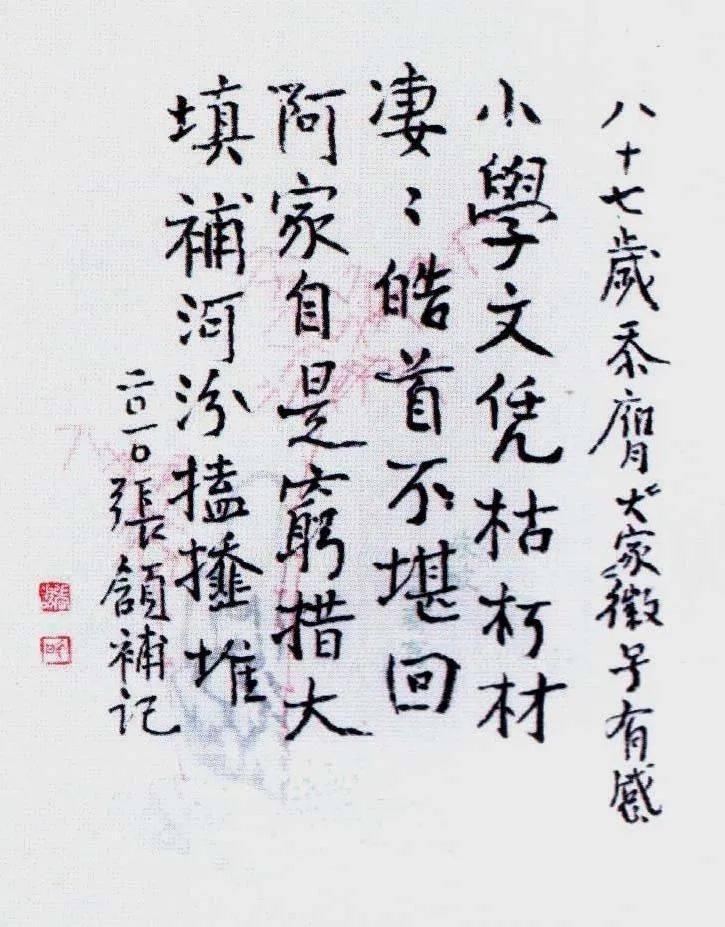 八十七歲忝膺"大家"徽号有感
小學文凭枯朽材
凄〻皓首不堪回
阿家自是窮措大
填補河汾搕𢶍堆
二〇一〇張頷補记